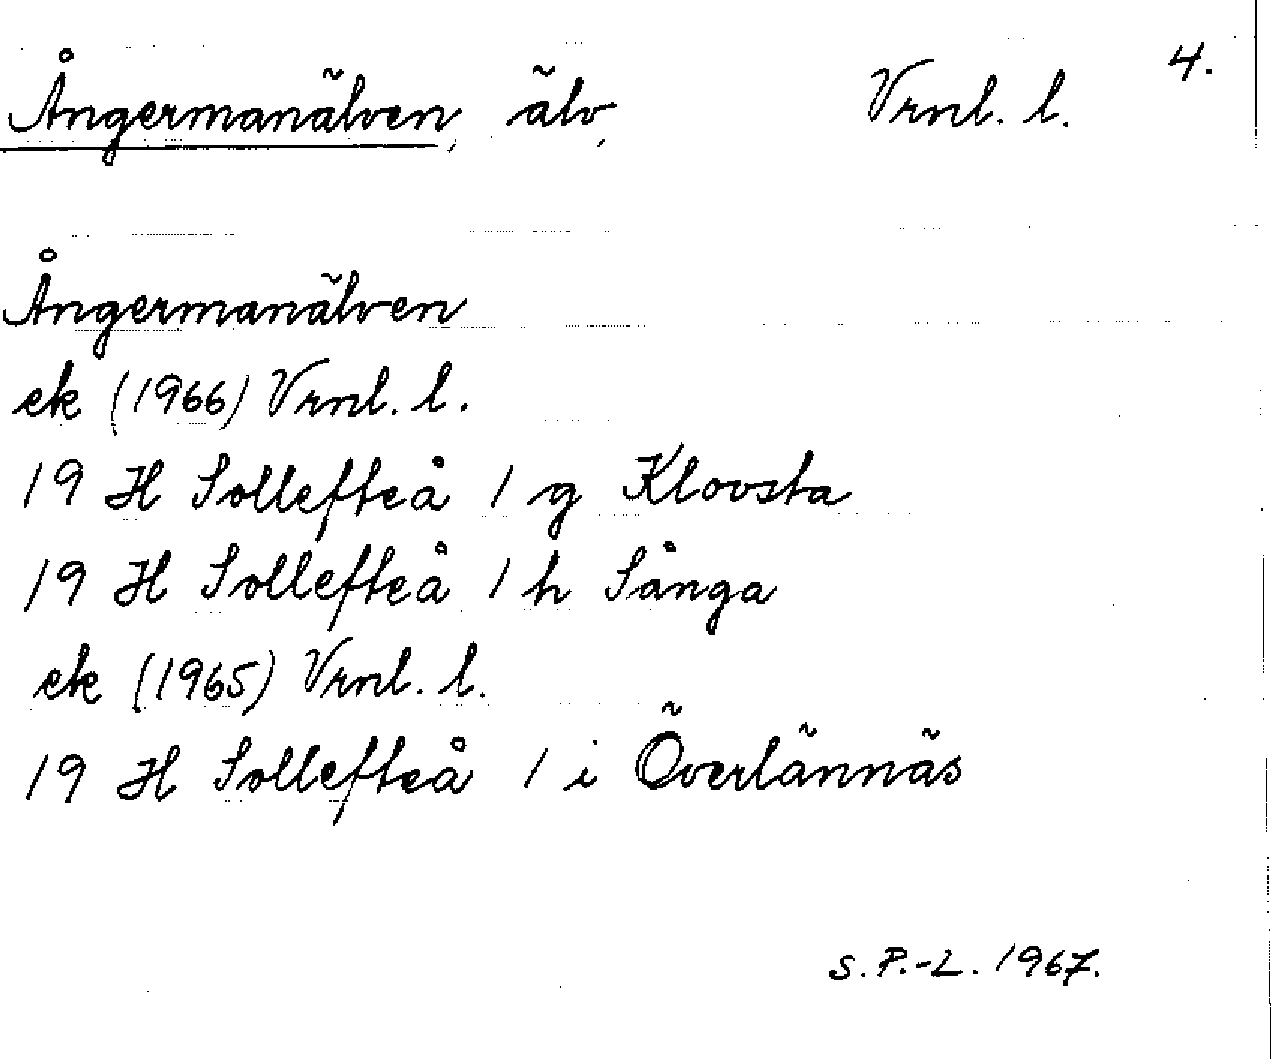 Ångermanälven, älv, Vrnl. l. 4.
Ångermanälven
ek (1966) Vrnl. l.
19 H Sollefteå 1 g Klovsta
19 H Sollefteå 1 h Sånga
ek (1965) Vrnl. l.
19 H Sollefteå 1 i Överlännäs
S. P.-L. 1967.